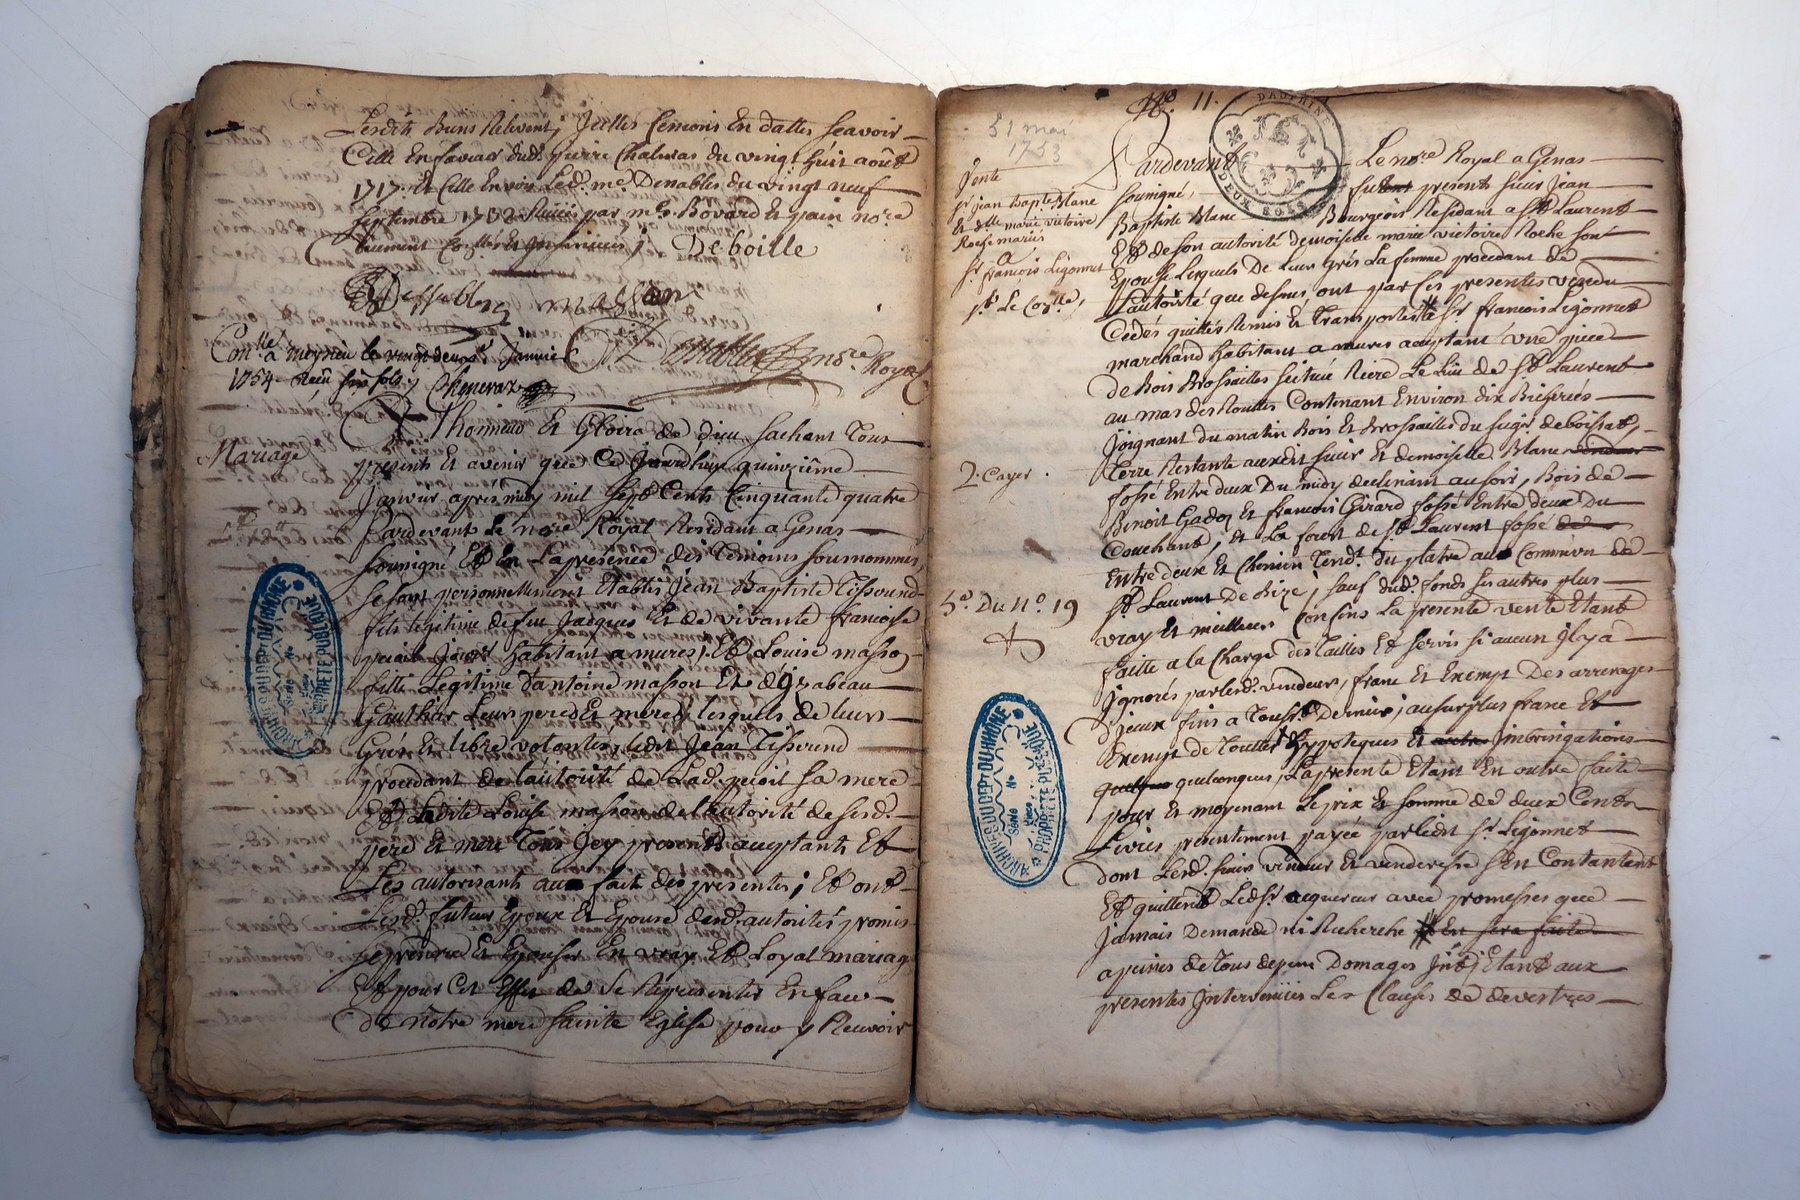 Lesdits Biens Relevent, Icelles Censions En dattes Scavoir
Celle En faveur dud. pierre Chalmas du vingt huit août
1717. Et Celle Envers Led. me. Denables du vingt neuf
Septembre 1752 par mes. Bovard Et pain nore
De boille
masson
nore. Royal
Conllé a meyzieu le vingt deux Janvier
1754. Reçu six sols
A Lhonneur Et Gloire de dieu sachent Tous
Mariage
presents Et avenir que Ce Jourdhuy quinzième
Janvier apres midy mil Sept Cents Cinquante quatre
Pardevant Le nore Royal Residant a Genas
soussigné Et En La presence des Temoins sousnommes,
se sont personnellement Etablis Jean Baptiste Tissound
fils legitime de feu Jacques Et de vivante francoise
habitant a mures, Et Louise masson
fille Legitime dantoine masson Et dÿzabeau
Gauthier Leurs pere Et mere, lesquels de leurs
Grés Et libre volontes, ledit Jean Tissound
procedant de lautorité de Lad. sa mere
Et Ladite Louise masson de lautorité de sesd.
pere Et mere Tous Jcy presents aceptants Et
Les autorisants au fait des presentes; Et ont
Lesd. futeur Epoux Et Epouse desd. autorités promis
se prendre Et Epouser En vray Et Loyal mariage
Et pour Cet Effet de Se Representer En face
de notre mere sainte Eglise pour y Recevoir
ARCHIVES DU DEPT DU RHONE
Série No
PROPRIETE PUBLIQUE
No. 11.
31 mai
1753
DAUPHINE
DEUX SOLS
Vente
sr jean Bapte Mane
Et dlle marie victoire
Roche mariés
a
sr. francois Ligonnet
pr. Le Conlle,
Pardevant Le nore Royal a Genas
soussigné, furent presents sieur Jean
Baptiste Mane Bourgeois Residant a St Laurent
Et de son autorité demoiselle marie victoire Roche son
Epouse Lesquels De Leurs grés La femme procedant de
Lautorité que dessus, ont par Ces presentes vendu
Cedés quittés Remis Et Transportés # Sr francois Ligonnet
marchand habitant a mures aceptant une piece
de Bois Brossailles Scituée Riere Le Lieu de St Laurent
au mas des Routtes Contenant Environ dix Bicherées
Joignant du matin Bois Et Brossailles du seigr. de boissat,
Terre Restante auxdit sieur Et demoiselle Mane
fossé Entre deux Du midy declinant au soir, Bois de
2. Cayer.
Benoit Gadoz Et francois Girard fossé Entre deux Du
Couchant, Et La forest de St Laurent fossé de
Entre deux Et Chemin Tendt. du platre au Commun de
St Laurent De Bize; sauf dud. fonds Ses autres plus
So. Du No. 19
vray Et meilleurs Confins La presente vente Etant
faitte a la Charge des Tailles Et Servis Si aucun Jl y a
Jgnorés par lesd. vendeurs, franc Et Exempt Des arrerages
Jceux au surplus franc Et
Exempt de Touttes hypoteques Et Jmbringations
quelconques, La presente Etant En outre faite
pour Et moyenant Le prix Et somme de deux Cents
Livres presentement payée par ledit Sr. Ligonnet
dont Lesd. sieurs vendeur Et venderesse Sen Contantent
Et quittent Led Sr acquereur avec promesses que
jamais Demande ni Recherche # En sera faite
a peines de Tous depens Domages Jntt; Etant aux
presentes Jntervenües Les Clauses de devestres
ARCHIVES DU DEPT DU RHONE
Série No
PROPRIETE PUBLIQUE